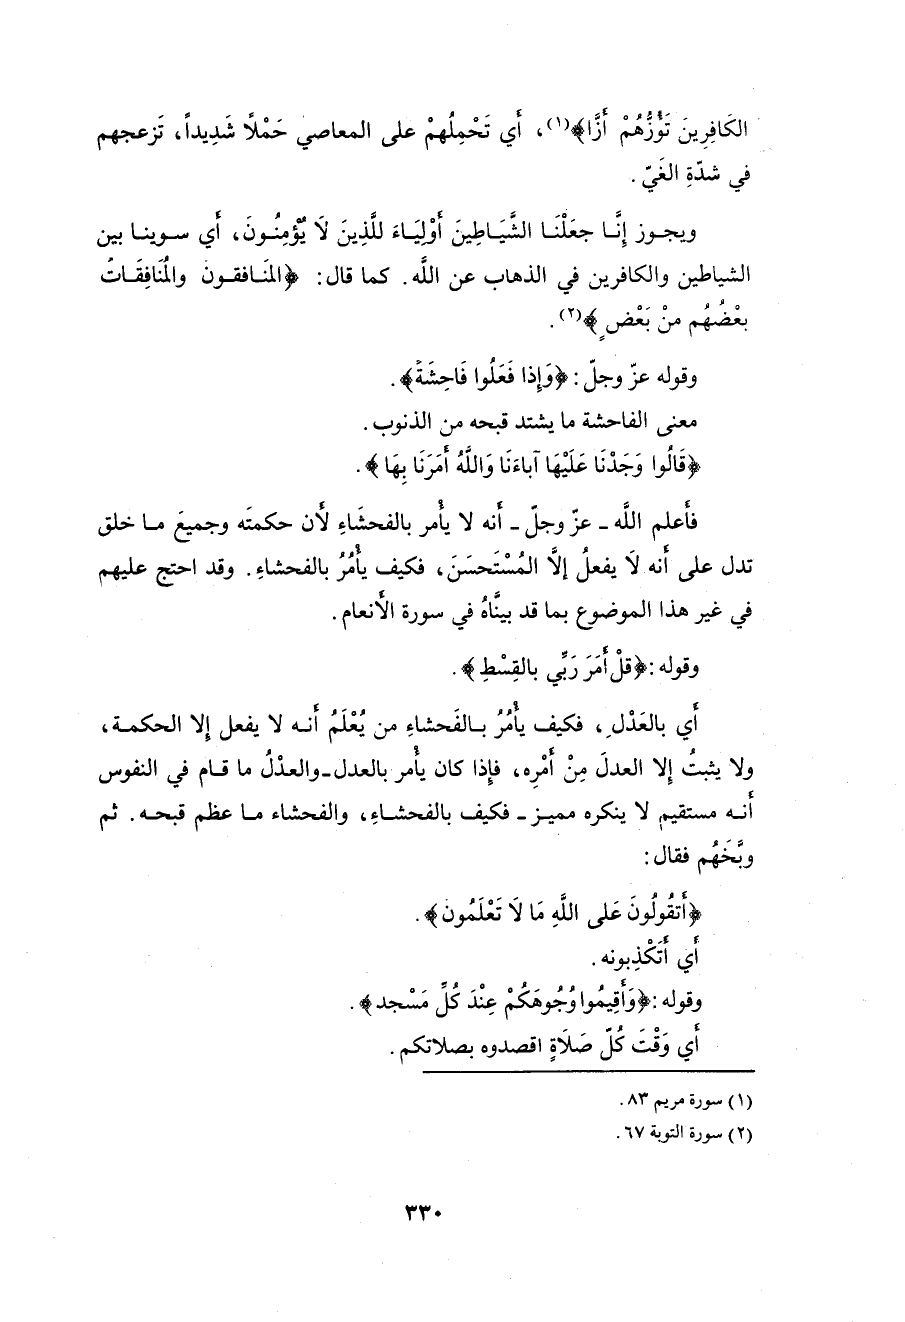 الكَافِرِينَ تَؤُزُّهُمْ أَزًّا﴾(١)، أَي تَحْمِلُهمْ على المعاصي حَمْلًا شَدِيداً، تَزعجهم
في شدّةِ الغَيّ.
ويجـوز إِنَّـا جعَلْنَـا الشَّيَـاطِينَ أَوْلِيَـاءَ للَّذِينَ لَا يُؤمِنُـونَ، أَي سـوينـا بين
الشياطين والكافرين في الذهاب عن اللَّه. كما قال: ﴿المَنَـافقـونَ والمُنَافِقَـاتُ
بعْضُهُم منْ بَعْضٍ﴾(٢).
وقوله عزّ وجلّ: ﴿وَإِذا فَعَلُوا فَاحِشَةً﴾.
معنى الفاحشة ما يشتد قبحه من الذنوب.
﴿قَالُوا وَجَدْنَا عَلَيْهَا آباءَنَا وَاللَّهُ أَمَرَنَا بِهَا﴾.
فأَعلم اللَّه ـ عزّ وجلّ ـ أَنه لا يأْمر بالفحشَاءِ لأَن حكمتَه وجميعَ مـا خلق
تدل على أَنه لَا يفعلُ إلاَّ المُسْتَحسَنَ، فكيف يأْمُرُ بالفحشاءِ. وقد احتج عليهم
في غير هذا الموضوع بما قد بينَّاهُ في سورة الأَنعام.
وقوله:﴿قلْ أَمَرَ رَبِّي بالقِسْطِ﴾.
أَي بالعَدْلِ، فكيف يأْمُرُ بـالفَحشاءِ من يُعْلَمُ أَنـه لا يفعل إلا الحكمـة،
ولا يثبتُ إلا العدلَ مِنْ أَمْرِه، فإذا كان يأْمر بالعدل-والعدْلُ ما قـام في النفوس
أَنـه مستقيم لا ينكره مميـز ـ فكيف بالفحشـاءِ، والفحشاء مـا عظم قبحـه. ثم
وبَّخَهُم فقال:
﴿أَتقُولُونَ عَلى اللَّهِ مَا لَا تَعْلَمُون﴾.
أَي أَتَكْذِبونه.
وقوله:﴿وَأَقِيمُوا وُجُوهَكُمْ عِنْدَ كُلِّ مَسْجد﴾.
أَي وَقْتَ كُلّ صَلَاةٍ اقصدوه بصلاتكم.
(١) سورة مريم ٨٣.
(٢) سورة التوبة ٦٧.
٣٣٠